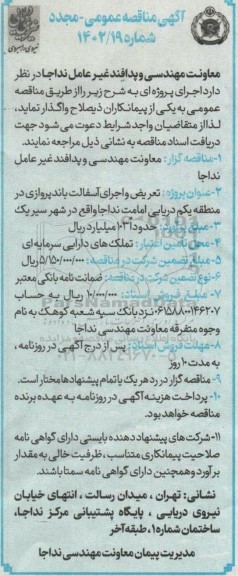 آگهی مناقصه عمومی-مجدد
شماره ۱۴۰۲/۱۹
معاونت مهندسی و پدافندغیر عامل نداجا در نظر
دارد اجرای پروژه ای به شرح زیر را از طریق مناقصه
عمومی به یکی از پیمانکاران ذیصلاح واگذار نماید،
لذا از متقاضیان واجد شرایط دعوت می شود جهت
دریافت اسناد مناقصه به نشانی ذیل مراجعه نمایند.
۱-مناقصه گزار: معاونت مهندسی و پدافند غیر عامل
نداجا
۲-عنوان پروژه: تعریض و اجرای آسفالت باند پروازی در
منطقه یکم دریایی امامت نداجا واقع در شهر سیریک
۳-مبلغ برآورد: حدوداً ۱۰۳ میلیارد ریال
۴-محل تأمین اعتبار: تملک های دارایی سرمایه ای
۵-مبلغ تضمین شرکت در مناقصه: ۵/۱۵۰/۰۰۰/۰۰۰ ریال
۶-نوع تضمین شرکت در مناقصه: ضمانت نامه بانکی معتبر
۷- مبلغ فروش اسناد: ۱۰/۰۰۰/۰۰۰ ریال به حساب
نزد بانک سپه شعبه کوهک به نام
وجوه متفرقه معاونت مهندسی نداجا
۸-مهلت فروش اسناد: پس از درج آگهی در روزنامه،
به مدت ۱۰ روز
۹- مناقصه گزار در رد هر یک یا تمام پیشنهادها مختار است.
۱۰- پرداخت هزینه آگهی در روزنامه به عهده برنده
مناقصه خواهد بود.
۱۱-شرکت های پیشنهاد دهنده بایستی دارای گواهی نامه
صلاحیت پیمانکاری متناسب، ظرفیت خالی به مقدار
برآورد و همچنین دارای گواهی نامه سمتا باشند.
نشانی: تهران ، میدان رسالت ، انتهای خیابان
نیروی دریایی ، پایگاه پشتیبانی مرکز نداجا،
ساختمان شماره ۱، طبقه آخر
مدیریت پیمان معاونت مهندسی نداجا